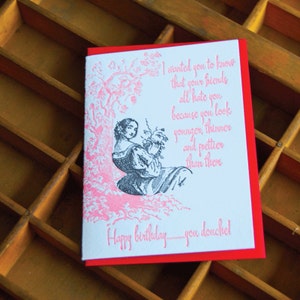 I wanted you to know
that your friends
all hate you
because you look
younger, thinner
and prettier
than them.
Happy birthday.........you douche!